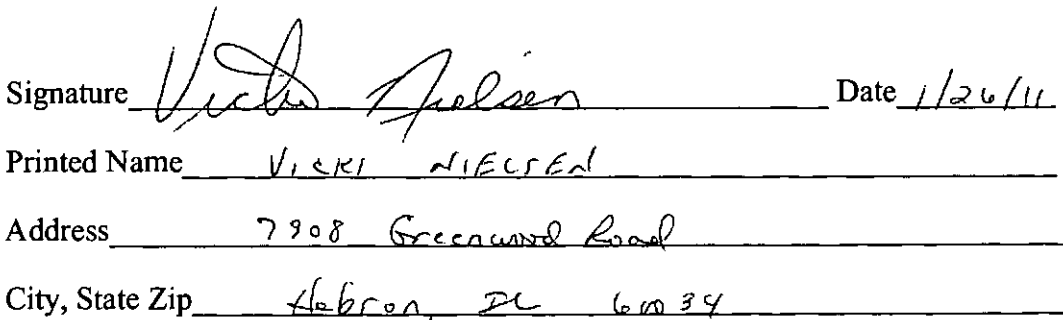 Signature Vicki Nielsen Date 1/26/11
Printed Name VICKI NIELSEN
Address 7908 Greenwood Road
City, State Zip Hebron, IL 60034